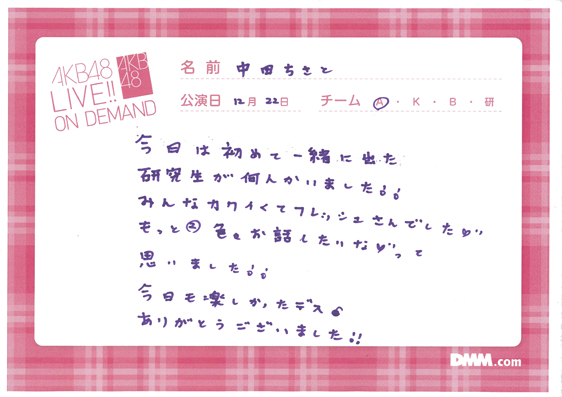 AKB48
LIVE!!
ON DEMAND
AKB
48
名前 中田ちさと
公演日 12月22日 チーム A・K・B・研
今日は初めて一緒に出た
研究生が何人かいました!!
みんなカワイくてフレッシュさんでした♡
もっと②色々お話したいな♡って
思いました!!
今日も楽しかったデス
ありがとうございました!!
DMM.com